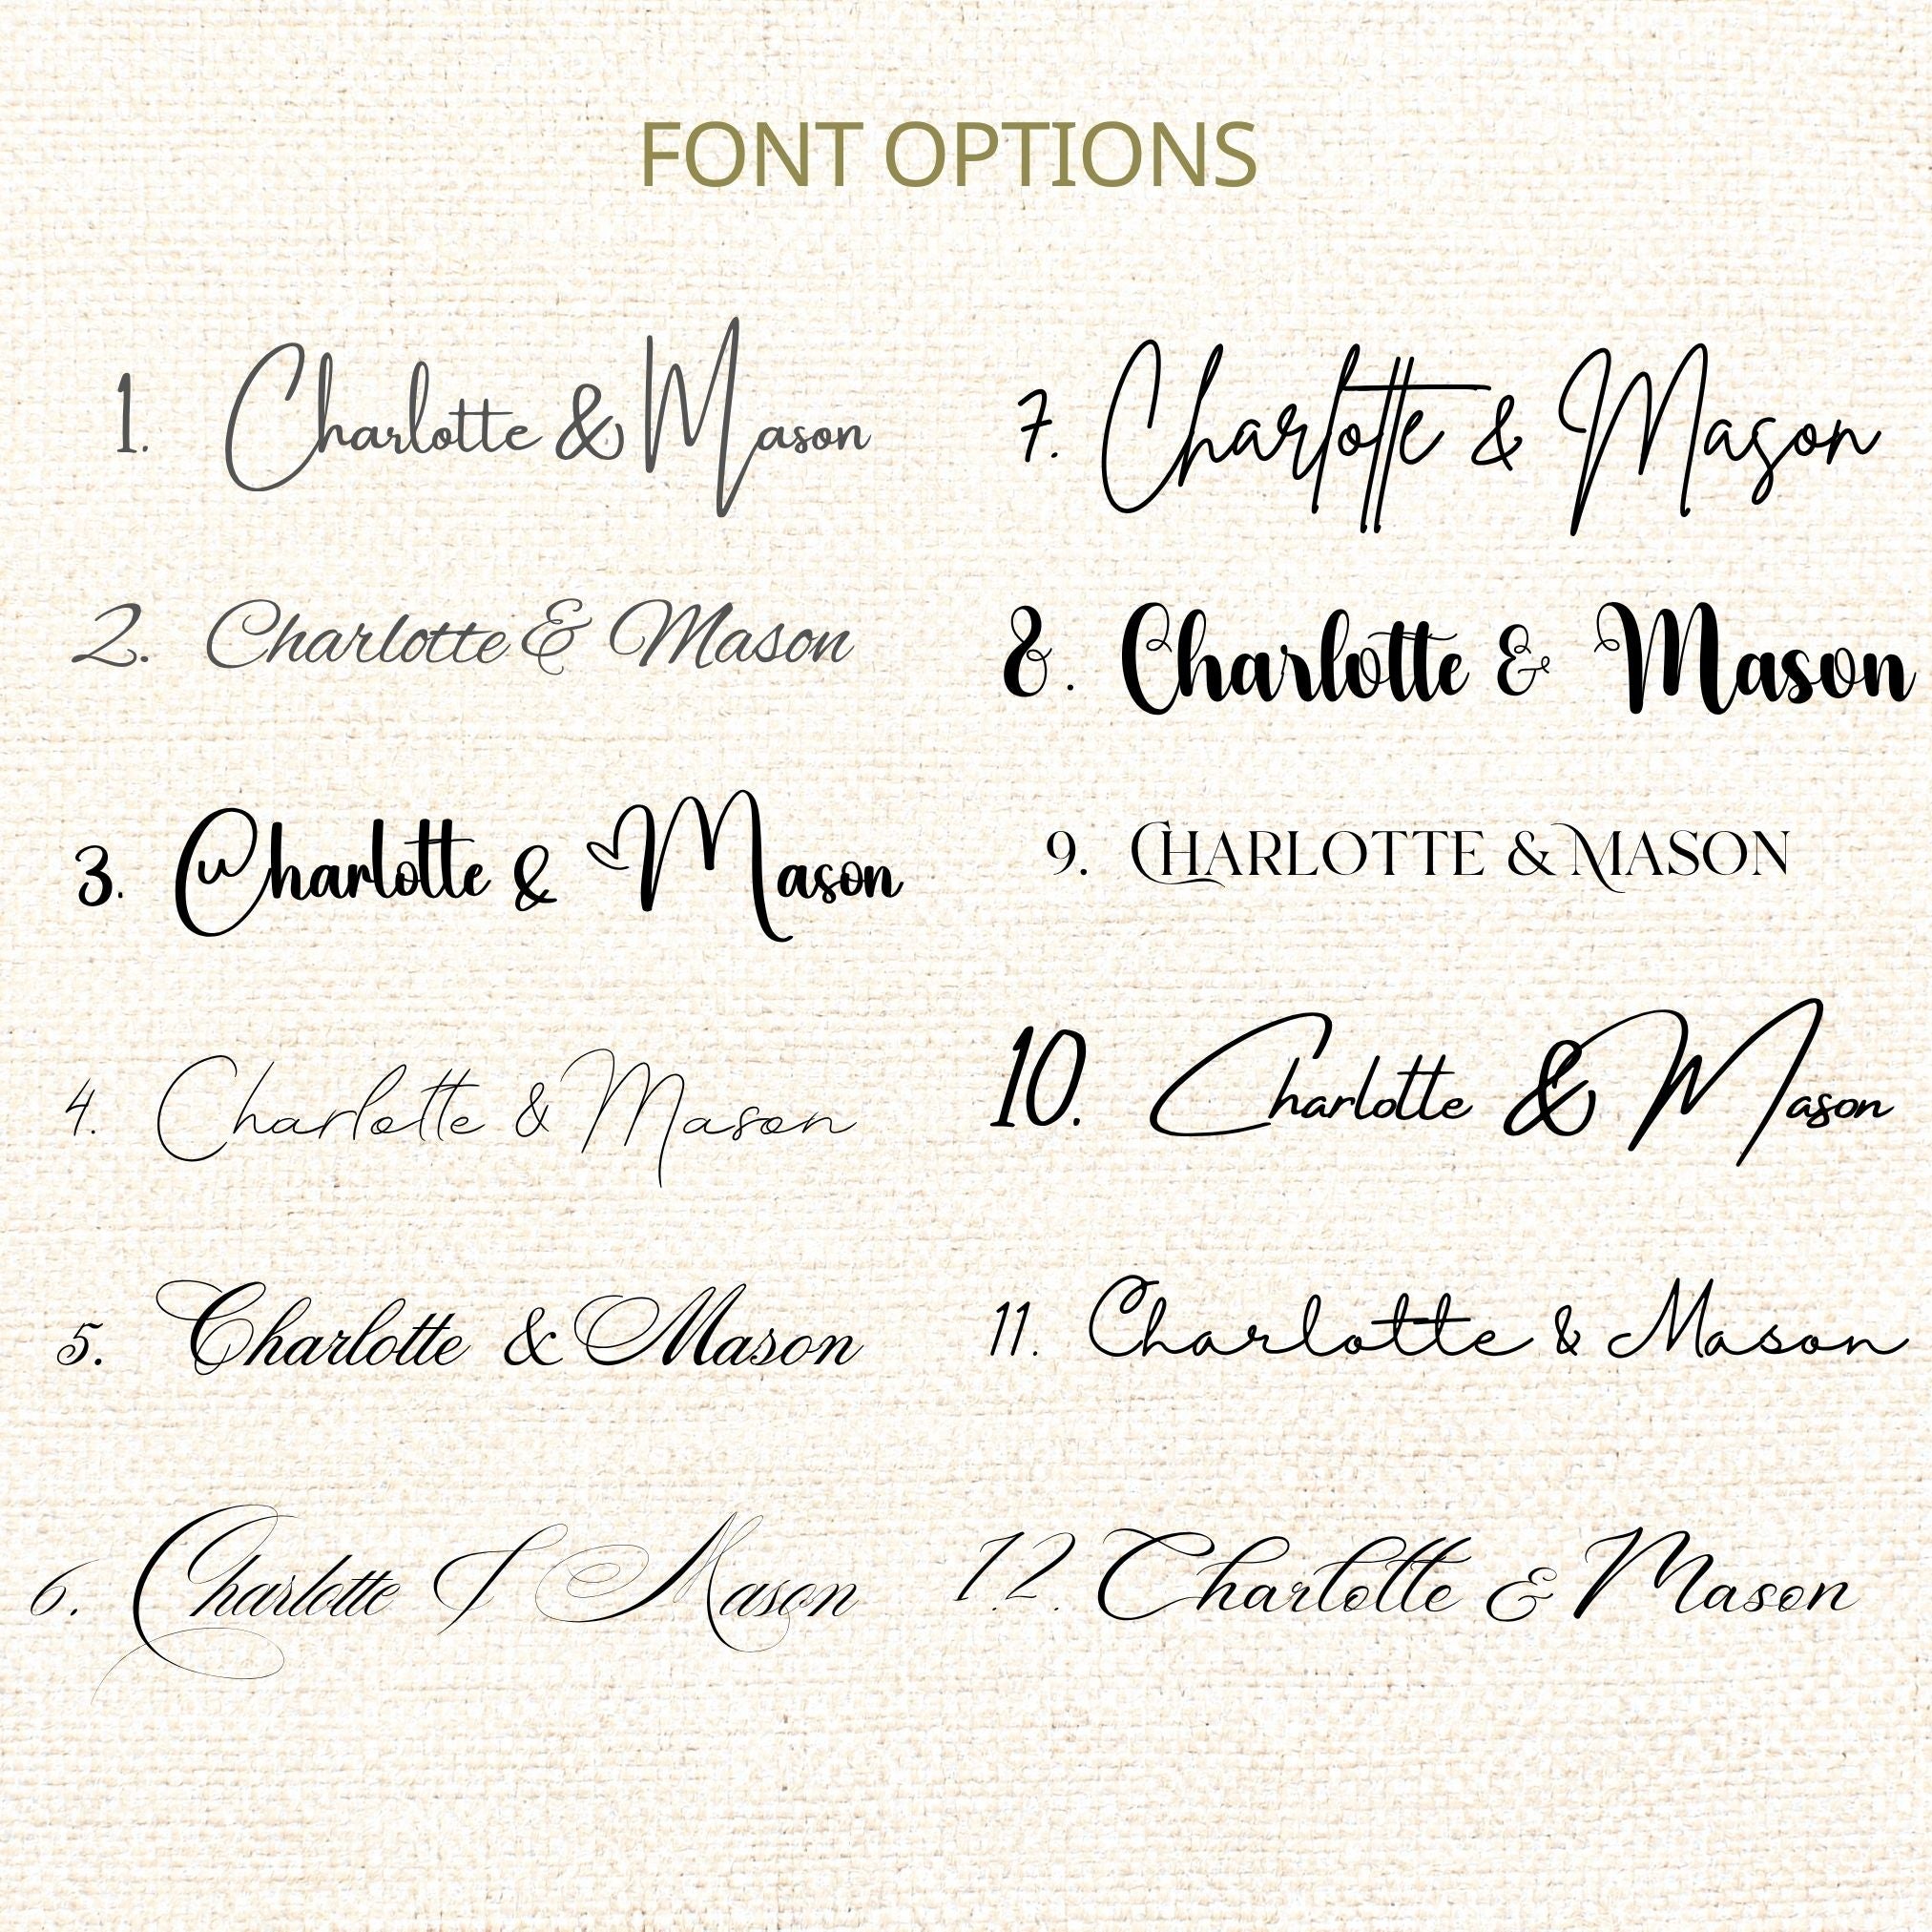 FONT OPTIONS
1. Charlotte & Mason
2. Charlotte & Mason
3. Charlotte & Mason
4. Charlotte & Mason
5. Charlotte & Mason
6. Charlotte & Mason
7. Charlotte & Mason
8. Charlotte & Mason
9. CHARLOTTE & MASON
10. Charlotte & Mason
11. Charlotte & Mason
12. Charlotte & Mason